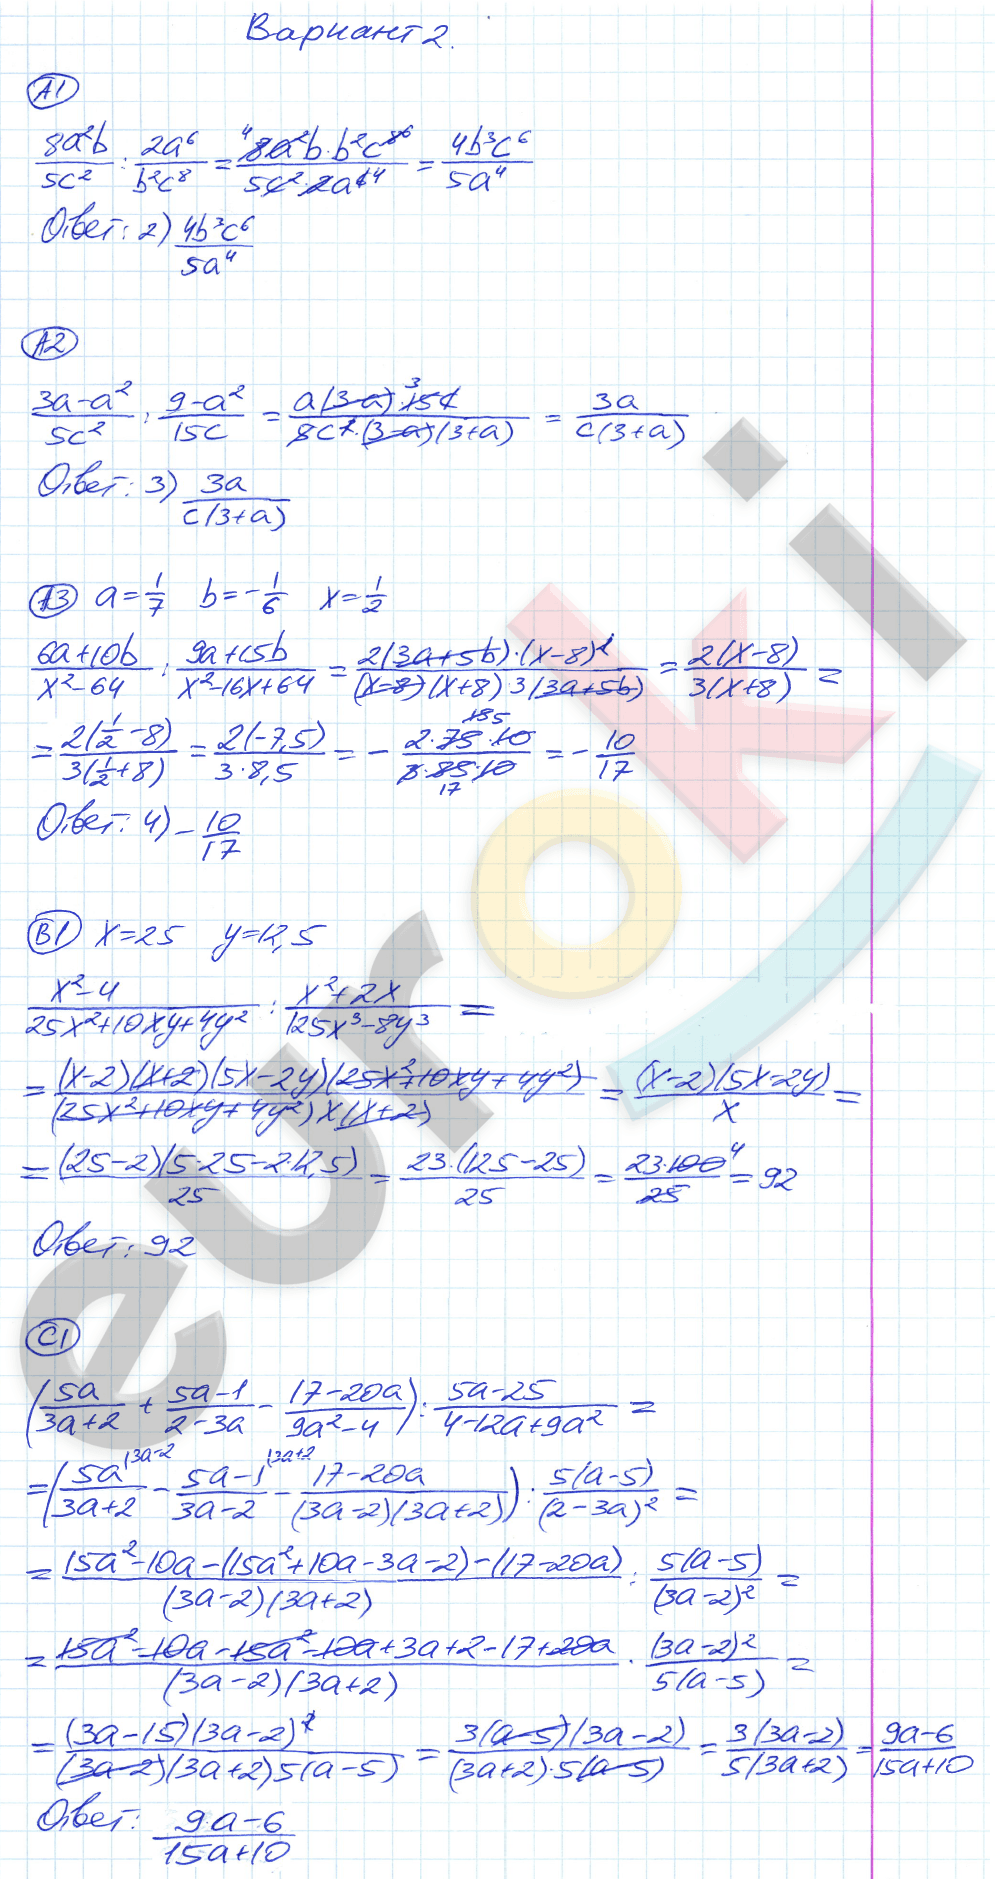 Вариант 2.
А1
8a²b/5c² : 2a⁶/b²c⁸ = ⁴8a²b·b²c⁸⁶/5c²·2a⁶⁴ = 4b³c⁶/5a⁴
Ответ: 2) 4b³c⁶/5a⁴
А2
3a-a²/5c² : 9-a²/15c = a(3-a)·³15c/5c²·(3-a)(3+a) = 3a/c(3+a)
Ответ: 3) 3a/c(3+a)
А3 a=1/7 b=-1/6 x=1/2
6a+10b/x²-64 : 9a+15b/x²-16x+64 = 2(3a+5b)·(x-8)²/(x-8)(x+8)·3(3a+5b) = 2(x-8)/3(x+8) =
= 2(1/2-8)/3(1/2+8) = 2(-7,5)/3·8,5 = - 2·75·10/3·85·10 = - 10/17
Ответ: 4) - 10/17
В1 x=25 y=12,5
x²-4/25x²+10xy+4y² : x²+2x/125x³-8y³ =
= (x-2)(x+2)(5x-2y)(25x²+10xy+4y²)/(25x²+10xy+4y²)x(x+2) = (x-2)(5x-2y)/x =
= (25-2)(5·25-2·12,5)/25 = 23·(125-25)/25 = 23·100⁴/25 = 92
Ответ: 92
С1
(5a/3a+2 + 5a-1/2-3a - 17-20a/9a²-4) : 5a-25/4-12a+9a² =
= (5a |3a-2/3a+2 - 5a-1 |3a+2/3a-2 - 17-20a/(3a-2)(3a+2)) : 5(a-5)/(2-3a)² =
= 15a²-10a-(15a²+10a-3a-2)-(17-20a)/(3a-2)(3a+2) : 5(a-5)/(3a-2)² =
= 15a²-10a-15a²-10a+3a+2-17+20a/(3a-2)(3a+2) · (3a-2)²/5(a-5) =
= (3a-15)(3a-2)²/(3a-2)(3a+2)5(a-5) = 3(a-5)(3a-2)/(3a+2)·5(a-5) = 3(3a-2)/5(3a+2) = 9a-6/15a+10
Ответ: 9a-6/15a+10
euroki